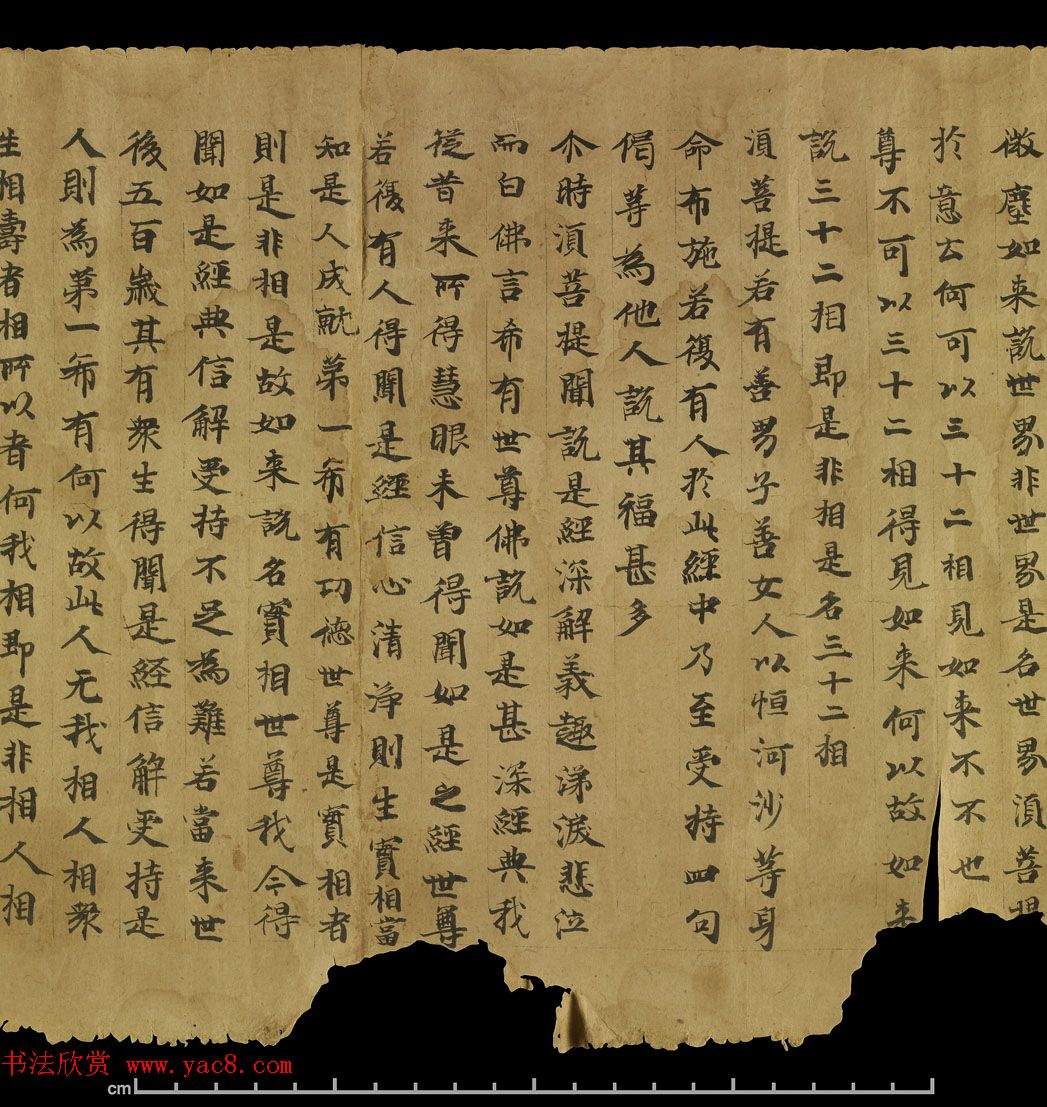 微塵如来說世界非世界是名世界湏菩提
於意云何可以三十二相見如来不不也
尊不可以三十二相得見如来何以故如来
說三十二相即是非相是名三十二相
湏菩提若有善男子善女人以恒河沙等身
命布施若復有人於此經中乃至受持四句
偈等為他人說其福甚多
尒時湏菩提聞說是經深解義趣涕淚悲泣
而白佛言希有世尊佛說如是甚深經典我
從昔来所得慧眼未曾得聞如是之經世尊
若復有人得聞是經信心清淨則生實相當
知是人成就第一希有功德世尊是實相者
則是非相是故如来說名實相世尊我今得
聞如是經典信解受持不足為難若當来世
後五百歲其有衆生得聞是経信解受持是
人則為第一希有何以故此人无我相人相衆
生相壽者相所以者何我相即是非相人相
书法欣赏 www.yac8.com
cm